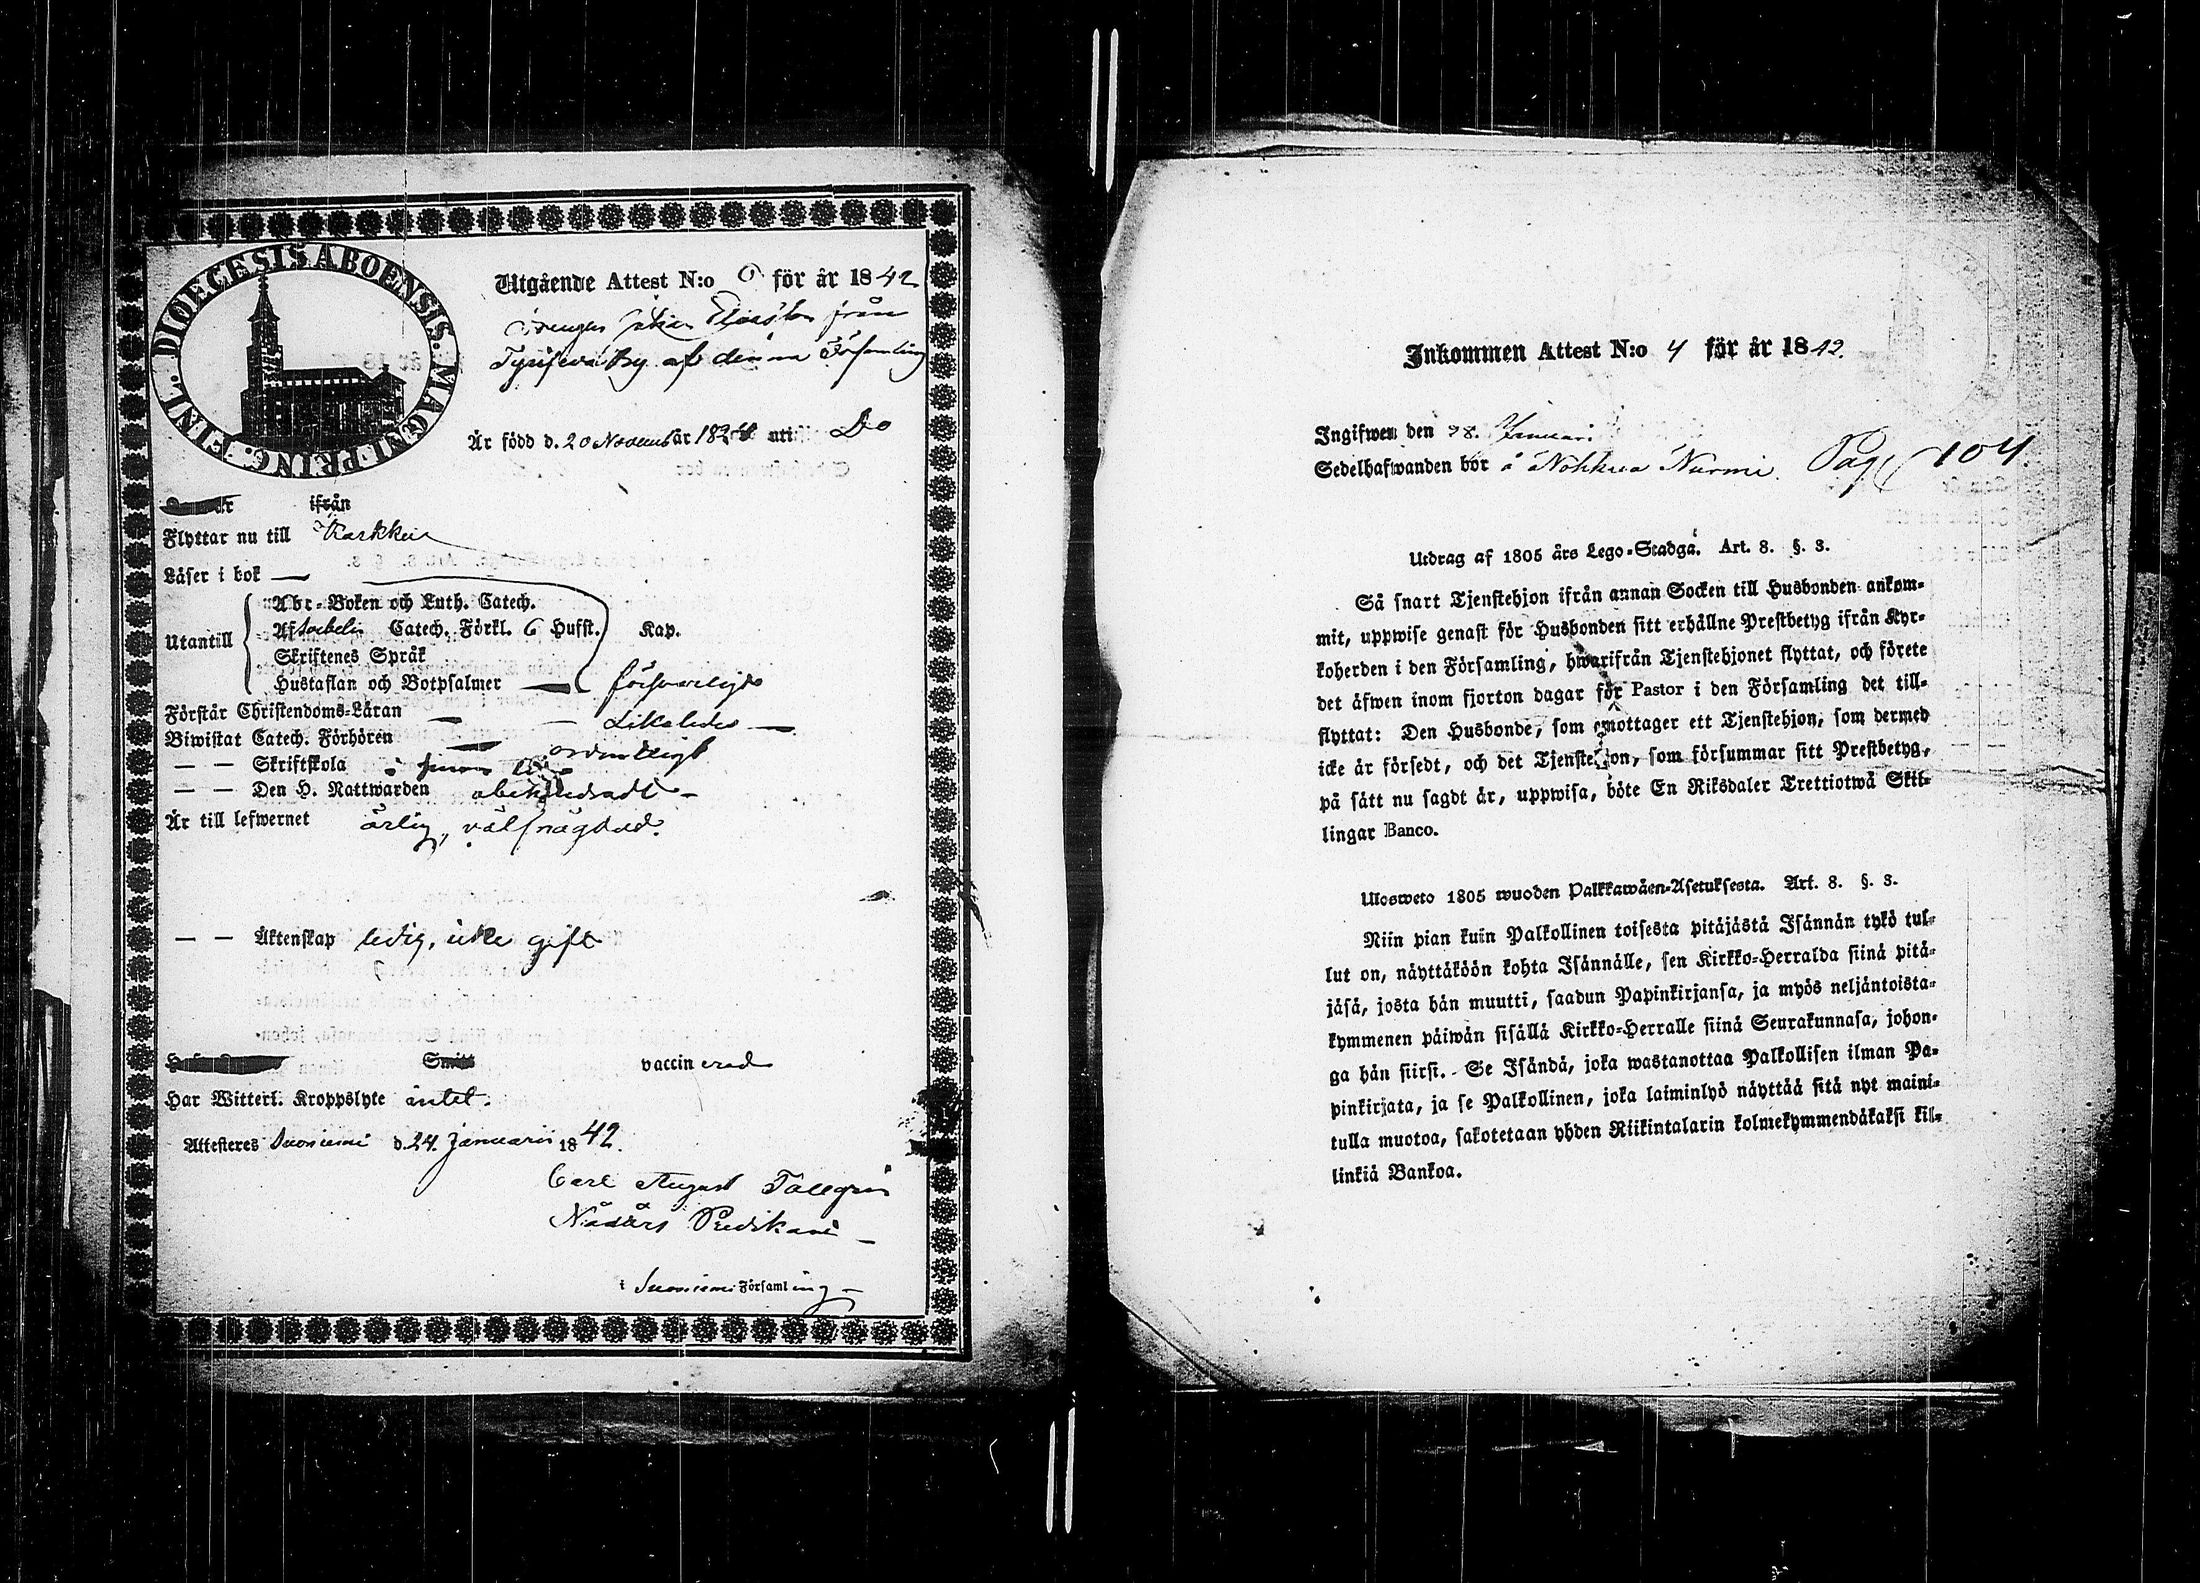 DIOECESIS ABOENSIS. MAGNI PRINC. FINL.
Utgående Attest N:o 6 för år 1842
Drengen Johan Eliasson från
Tyrisevä By af denna Församling
Är född d. 20 November år 1824 uti Do
ifrån
Flyttar nu till Karkku
Läser i bok —
Utantill
Abc-Boken och Luth. Catech.
Af Catech. Förkl. 6 Hufst. Kap.
Skriftenes Språk
Hustaflan och Botpsalmer — försvarligt
Förstår Christendoms-Läran — — Likaledes —
Biwistat Catech. Förhören — ordentligt
— — Skriftskola i
— — Den H. Nattwarden obehindradt —
Är till lefwernet ärlig, välfrägdad.
— — Äktenskap ledig, icke gift
Smitt vaccinerad
Har Witterl. Kroppslyte intet.
Attesteres Suoniemi d. 24. Januarii 1842.
Carl August Tallgren
Nådårs Predikant —
i Suoniemi Församling —
Inkommen Attest N:o 4 för år 1842.
Ingifwen den 28. Januari.
Sedelhafwanden bor å Nohkua Nurmi. Pag. 104.
Utdrag af 1805 års Lego-Stadga. Art. 8. §. 3.
Så snart Tjenstehjon ifrån annan Socken till Husbonden ankom-
mit, uppwise genast för Husbonden sitt erhållne Prestbetyg ifrån Kyr-
koherden i den Församling, hwarifrån Tjenstehjonet flyttat, och förete
det äfwen inom fjorton dagar för Pastor i den Församling det till-
flyttat: Den Husbonde, som emottager ett Tjenstehjon, som dermed
icke är försedt, och det Tjenstehjon, som försummar sitt Prestbetyg,
på sätt nu sagdt är, uppwisa, böte En Riksdaler Trettiotwå Skil-
lingar Banco.
Ulosweto 1805 wuoden Palkkawäen-Asetuksesta. Art. 8. §. 3.
Niin pian kuin Palkollinen toisesta pitäjästä Isännän tykö tul-
lut on, näyttäköön kohta Isännälle, sen Kirkko-Herralda siinä pitä-
jäsä, josta hän muutti, saadun Papinkirjansa, ja myös neljäntoista-
kymmenen päiwän sisällä Kirkko-Herralle siinä Seurakunnasa, johon-
ga hän siirsi. Se Isändä, joka wastanottaa Palkollisen ilman Pa-
pinkirjata, ja se Palkollinen, joka laiminlyö näyttää sitä nyt maini-
tulla muotoa, sakotetaan yhden Riikintalarin kolmekymmendäkaksi kil-
linkiä Bankoa.